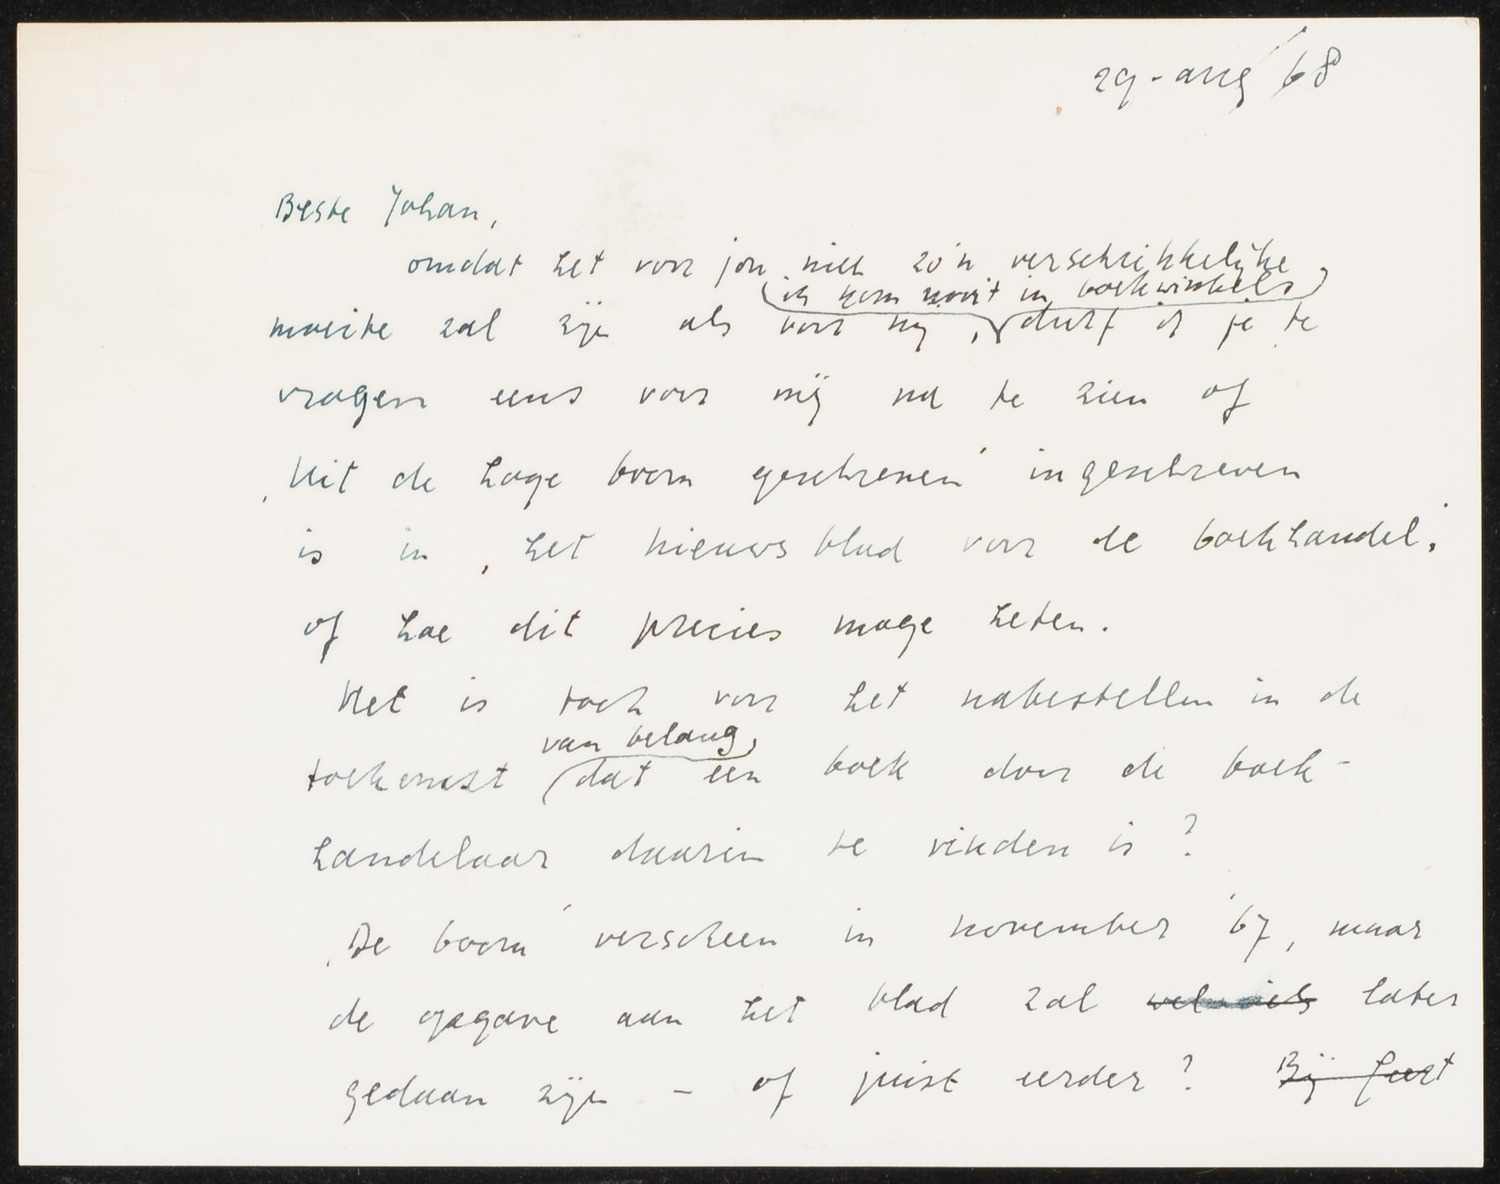 29 - aug '68
Beste Johan,
omdat het voor jou niet zo'n verschrikkelijke
(ik kom nooit in boekwinkels)
moeite zal zijn als voor mij, durf ik je te
vragen eens voor mij na te zien of
‚Uit de hoge boom geschreven' ingeschreven
is in ‚het nieuwsblad voor de boekhandel'
of hoe dit precies moge heten.
Het is toch voor het nabestellen in de
van belang,
toekomst dat een boek door de boek-
handelaar daarin te vinden is?
‚De boom' verscheen in november '67, maar
de opgave aan het blad zal wel iets later
gedaan zijn - of juist eerder? Bij Geert